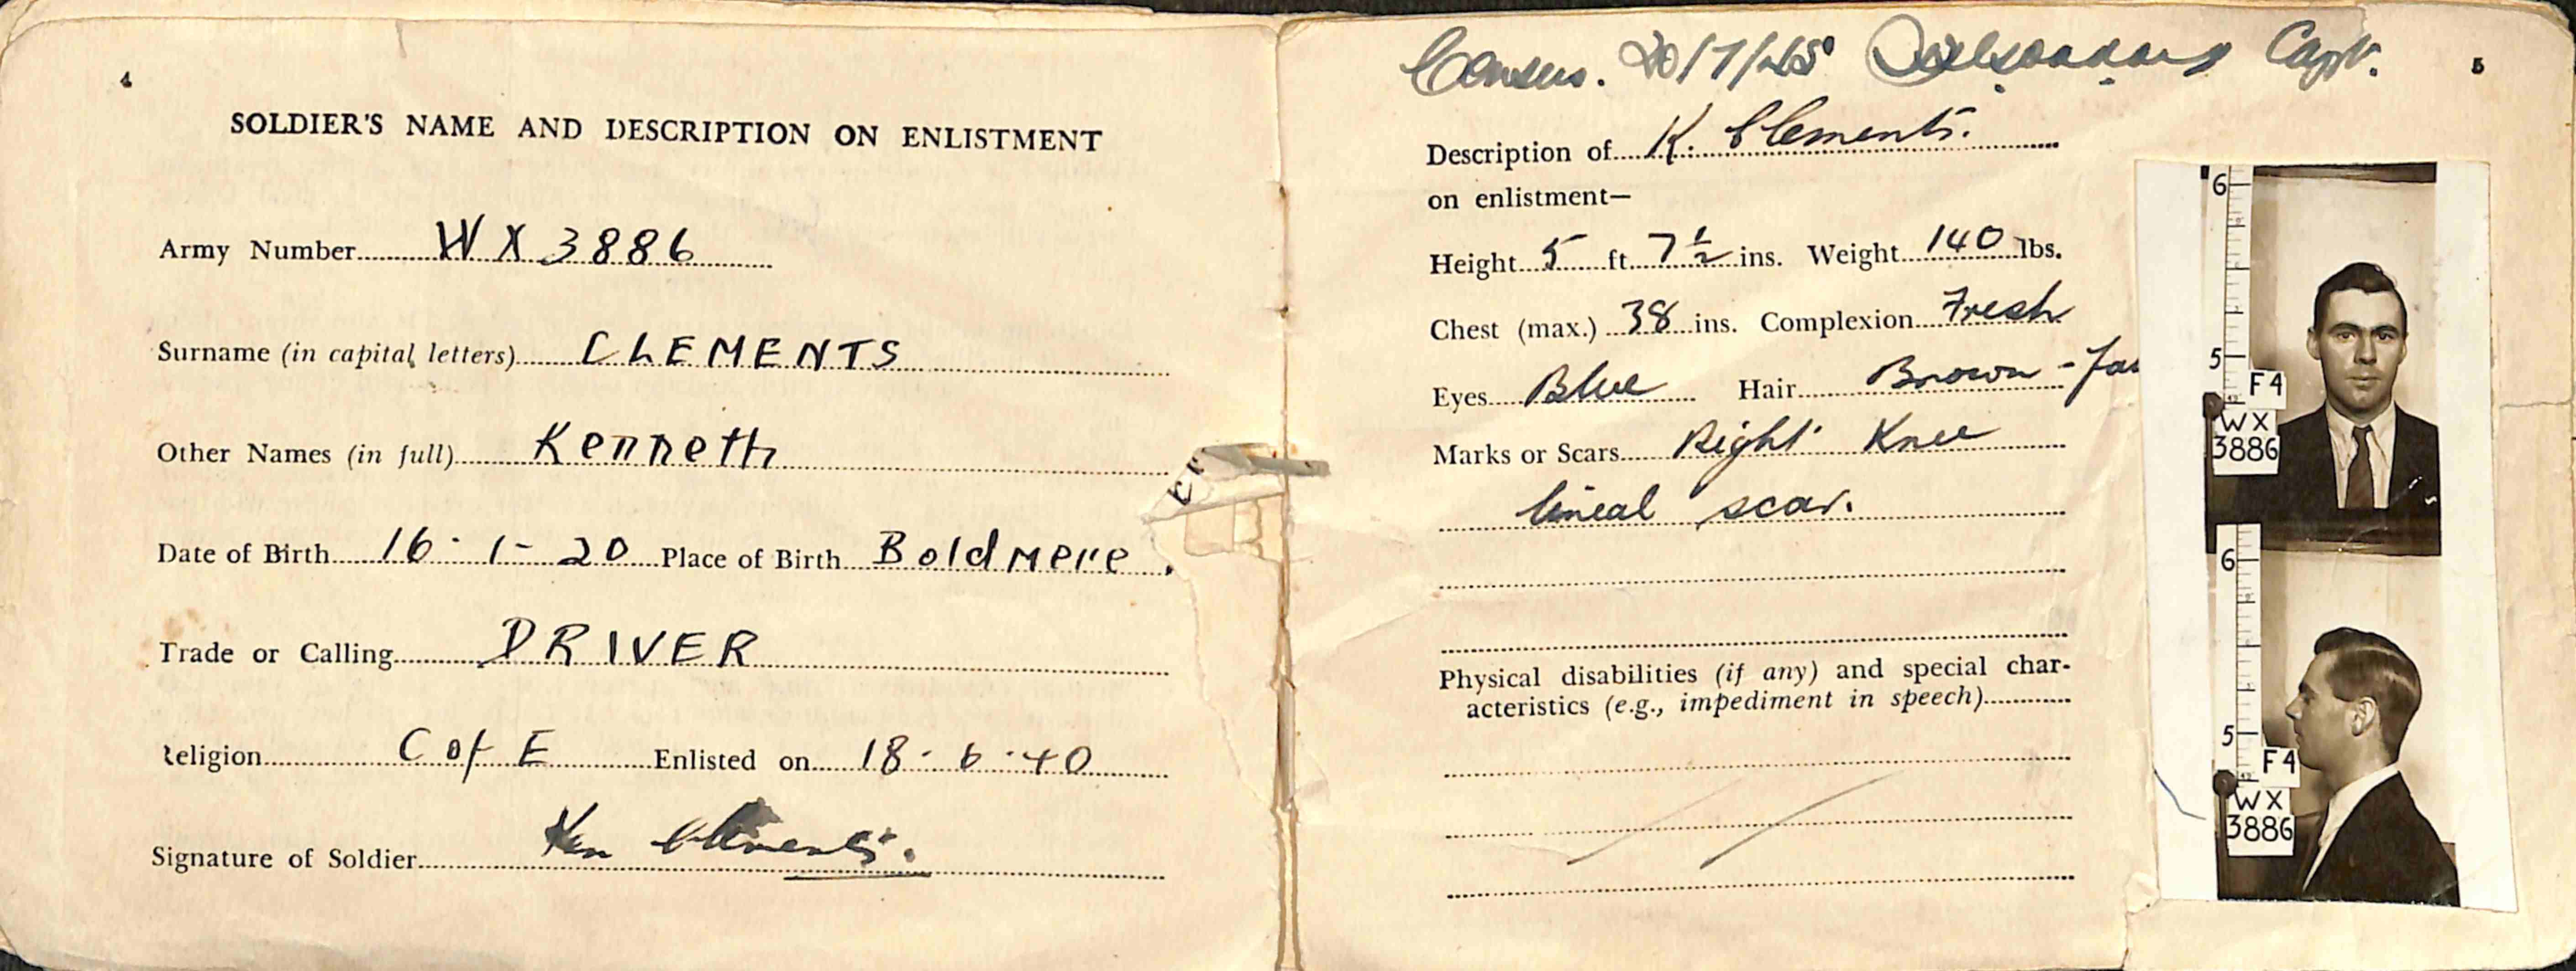 4
SOLDIER'S NAME AND DESCRIPTION ON ENLISTMENT
Army Number WX3886
Surname (in capital letters) CLEMENTS
Other Names (in full) Kenneth
Date of Birth 16-1-20 Place of Birth Boldmere.
Trade or Calling DRIVER
Religion C of E Enlisted on 18.6.40
Signature of Soldier Ken Clements.
5
Census. 20/7/45 Capt.
Description of K. Clements.
on enlistment—
Height 5 ft. 7 1/2 ins. Weight 140 lbs.
Chest (max.) 38 ins. Complexion Fresh
Eyes Blue Hair Brown -
Marks or Scars Right Knee
lineal scar.
Physical disabilities (if any) and special char-
acteristics (e.g., impediment in speech)
6
5
F4
WX
3886
6
5
F4
WX
3886